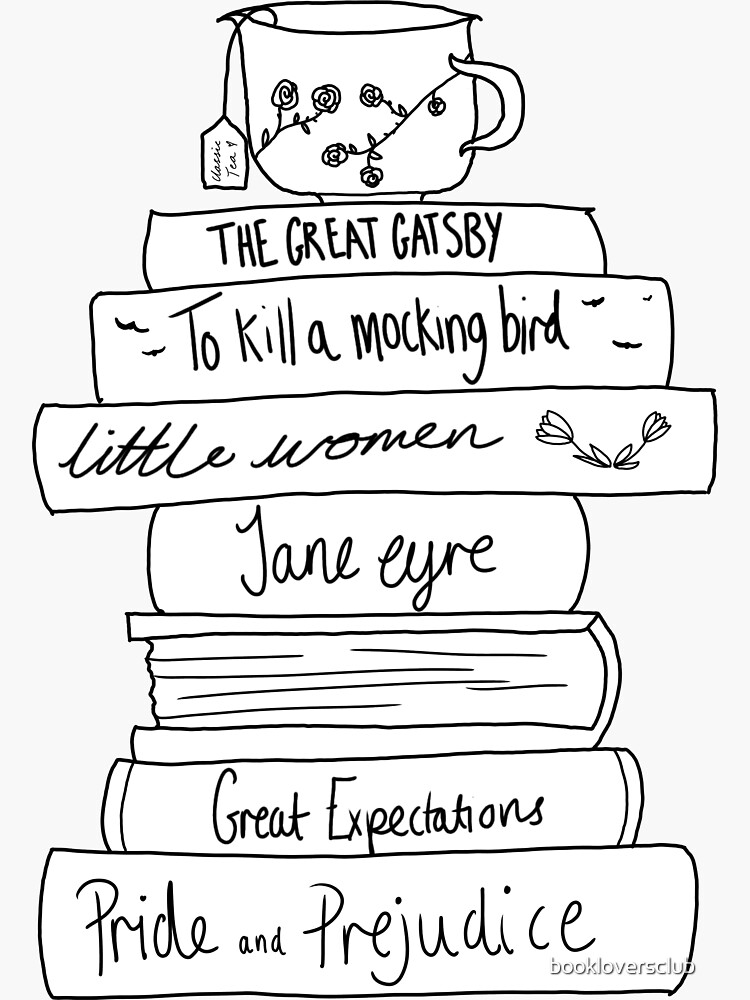 Classic
Tea
THE GREAT GATSBY
To Kill a mocking bird
little women
Jane eyre
Great Expectations
Pride and Prejudice
bookloversclub